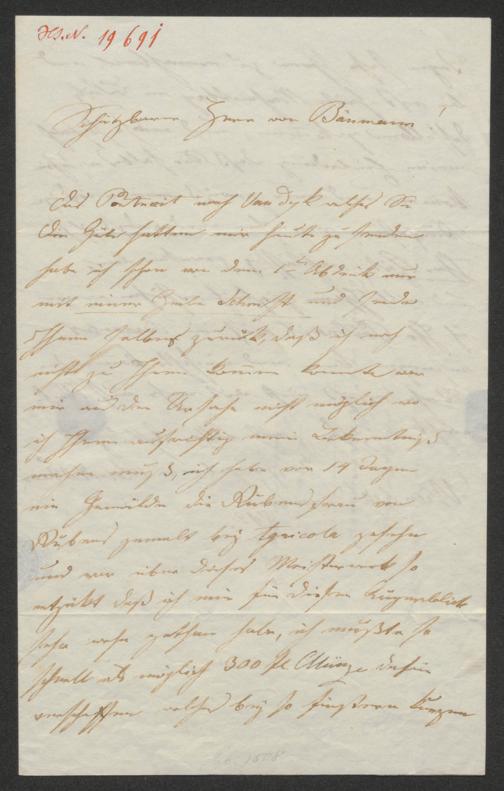 H.I.N. 19691
Schätzbarer Herr von Baumann!
Das Portrait nach Van dyk welches Sie
die Güte hatten mir heute zu senden
habe ich schon von dem 1t Abdruk nur
mit einer Zeile Schrift und sende
Ihnen selbes zurück, daß ich noch
nicht zu Ihnen kommen konnte war
mir aus der Ursache nicht möglich wo
ich Ihnen aufrichtig mein Bekenntniß
machen muß, ich habe vor 14 Tagen
ein Gemälde die Rubensfrau von
Rubens gemalt bey Agricola gesehen
und war über dieses Meisterwerk so
entzükt daß ich mir für diesen Augenblick
sehr wehe gethan habe, ich mußte so
schnell als möglich 300 fl Münze dafür
verschaffen welches bey so